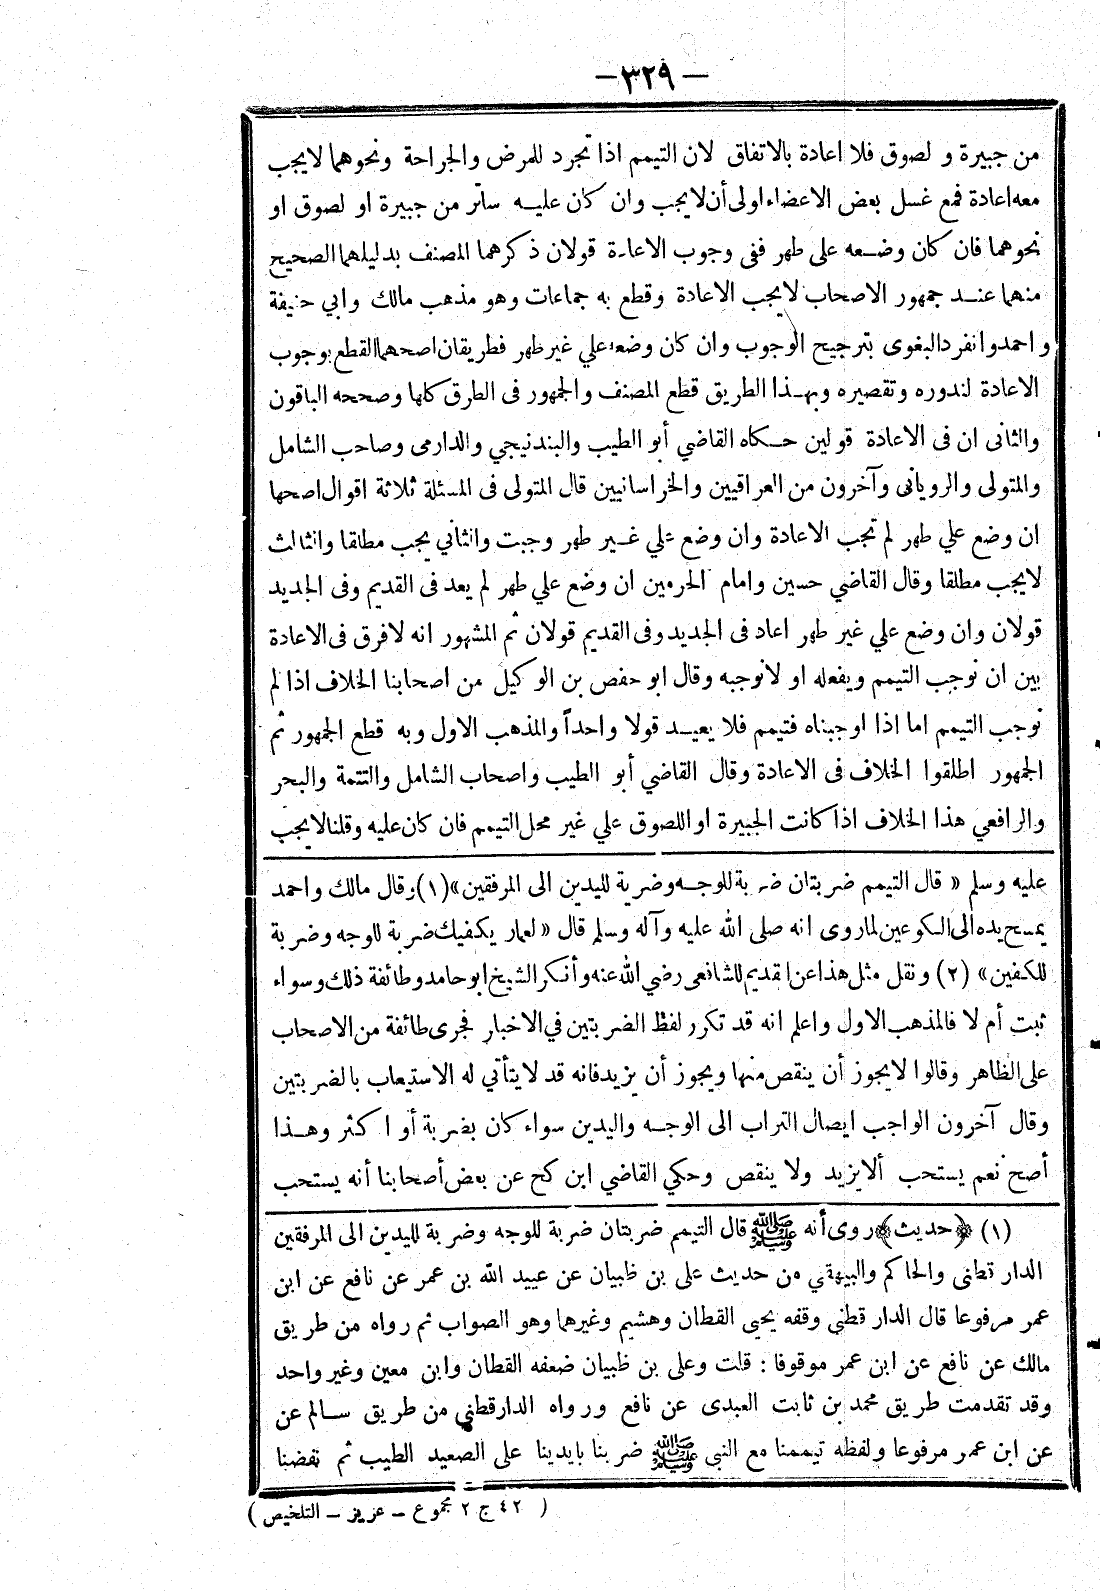 —٣٢٩—
من جبيرة و لصوق فلا اعادة بالاتفاق لان التيمم اذا تجرد للمرض والجراحة ونحوهما لايجب
معه اعادة فمع غسل بعض الاعضاء اولى أن لايجب وان كان عليه ساتر من جبيرة او لصوق او
نحوهما فان كان وضعه علي طهر ففي وجوب الاعادة قولان ذكرهما المصنف بدليلهما الصحيح
منهما عند جمهور الاصحاب لايجب الاعادة وقطع به جماعات وهو مذهب مالك وابي حنيفة
و احمد وانفرد البغوى بترجيح الوجوب وان كان وضعه علي غير طهر فطريقان اصحهما القطع بوجوب
الاعادة لندوره وتقصيره وبهذا الطريق قطع المصنف والجمهور فى الطرق كلها وصححه الباقون
والثانى ان فى الاعادة قولين حكاه القاضي أبو الطيب والبندنيجي والدارمى وصاحب الشامل
والمتولى والرويانى وآخرون من العراقيين والخراسانيين قال المتولى فى المسئلة ثلاثة اقوال اصحها
ان وضع علي طهر لم تجب الاعادة وان وضع علي غير طهر وجبت والثاني يجب مطلقا والثالث
لايجب مطلقا وقال القاضي حسين وامام الحرمين ان وضع علي طهر لم يعد فى القديم وفى الجديد
قولان وان وضع علي غير طهر اعاد فى الجديد وفى القديم قولان ثم المشهور انه لا فرق فى الاعادة
بين ان نوجب التيمم ويفعله او لا نوجبه وقال ابو حفص بن الوكيل من اصحابنا الخلاف اذا لم
نوجب التيمم اما اذا اوجبناه فتيمم فلا يعيد قولا واحداً والمذهب الاول وبه قطع الجمهور ثم
الجمهور اطلقوا الخلاف فى الاعادة وقال القاضي أبو الطيب واصحاب الشامل والتتمة والبحر
والرافعي هذا الخلاف اذا كانت الجبيرة او اللصوق علي غير محل التيمم فان كان عليه وقلنا لايجب
عليه وسلم « قال التيمم ضربتان ضربة للوجه وضربة لليدين الى المرفقين» (١) وقال مالك واحمد
يمسح يده الى الكوعين لماروى انه صلى الله عليه وآله وسلم قال « لعمار يكفيك ضربة للوجه وضربة
للكفين» (٢) ونقل مثل هذا عن القديم للشافعى رضي الله عنه وأنكر الشيخ ابو حامد وطائفة ذلك وسواء
ثبت أم لا فالمذهب الاول واعلم انه قد تكرر لفظ الضربتين في الاخبار فجرى طائفة من الاصحاب
على الظاهر وقالوا لايجوز أن ينقص منها ويجوز أن يزيد فانه قد لا يتأتي له الاستيعاب بالضربتين
وقال آخرون الواجب ايصال التراب الى الوجه واليدين سواء كان بضربة أو اكثر وهذا
أصح نعم يستحب ألايزيد ولا ينقص وحكي القاضي ابن كج عن بعض أصحابنا أنه يستحب
(١) ﴿حديث﴾ روى أنه ﷺ قال التيمم ضربتان ضربة للوجه وضربة لليدين الى المرفقين
الدار قطنى والحاكم والبيهقي من حديث على بن ظبيان عن عبيد الله بن عمر عن نافع عن ابن
عمر مرفوعا قال الدار قطنى وقفه يحيى القطان وهشيم وغيرهما وهو الصواب ثم رواه من طريق
مالك عن نافع عن ابن عمر موقوفا : قلت وعلى بن ظبيان ضعفه القطان وابن معين وغير واحد
وقد تقدمت طريق محمد بن ثابت العبدى عن نافع ورواه الدارقطني من طريق سالم عن
عن ابن عمر مرفوعا ولفظه تيممنا مع النبى ﷺ ضربنا بايدينا على الصعيد الطيب ثم نفضنا
( ٤٢ ج ٢ مجموع – عزيز – التلخيص )